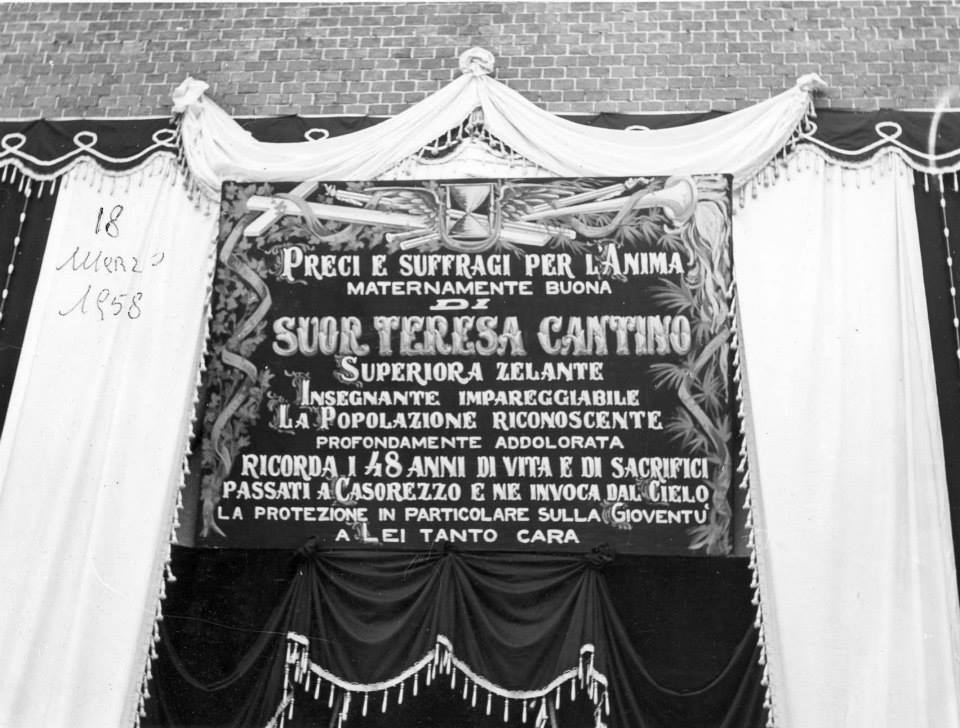 18
Marzo
1958
PRECI E SUFFRAGI PER L'ANIMA
MATERNAMENTE BUONA
DI
SUOR TERESA CANTINO
SUPERIORA ZELANTE
INSEGNANTE IMPAREGGIABILE
LA POPOLAZIONE RICONOSCENTE
PROFONDAMENTE ADDOLORATA
RICORDA I 48 ANNI DI VITA E DI SACRIFICI
PASSATI A CASOREZZO E NE INVOCA DAL CIELO
LA PROTEZIONE IN PARTICOLARE SULLA GIOVENTU'
A LEI TANTO CARA